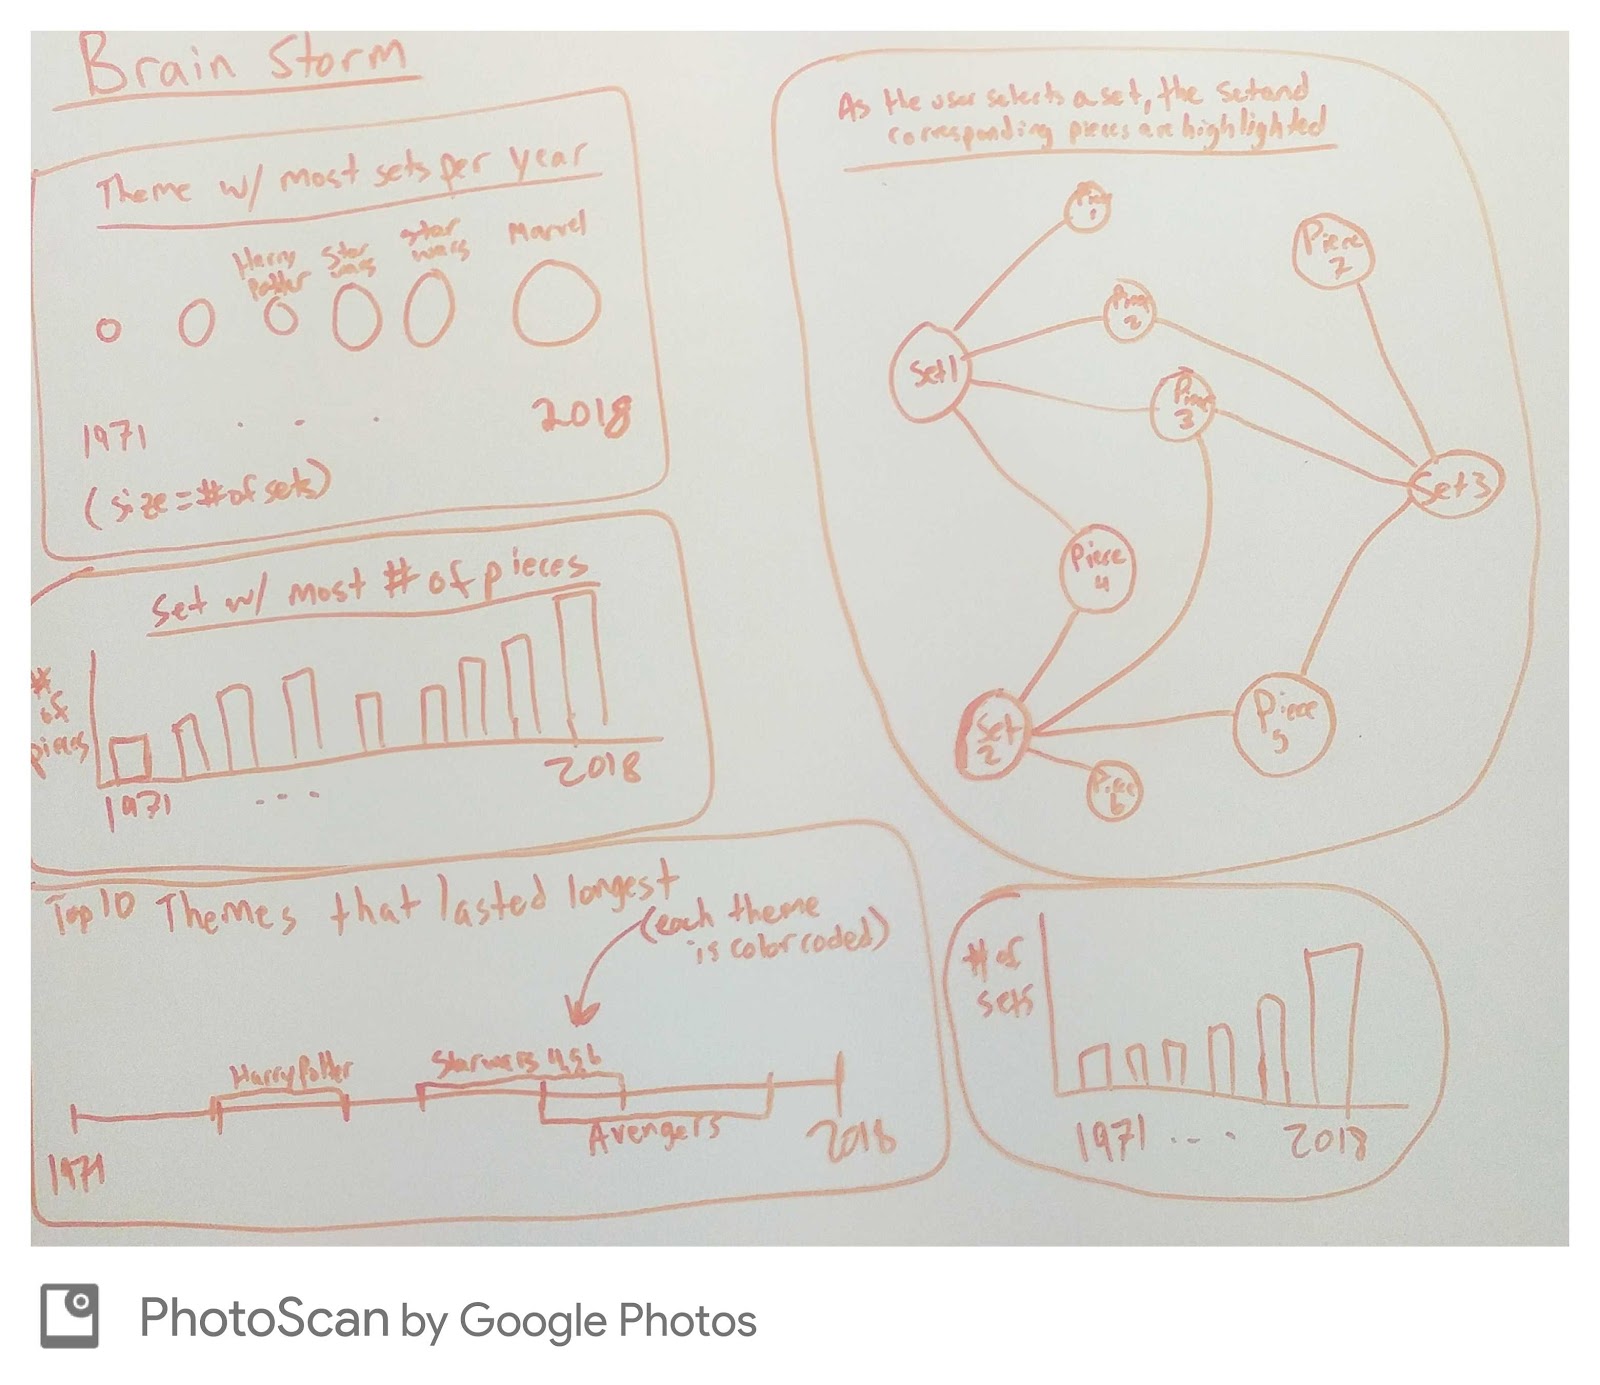 Brain Storm
Theme w/ most sets per year
Harry
Potter
Star
wars
Star
wars
Marvel
1971 . . . 2018
(size = # of sets)
Set w/ most # of pieces
#
of
pieces
1971 ... 2018
Top 10 Themes that lasted longest
(each theme
is color coded)
Harry Potter
Star wars 4,5,6
Avengers
1971
2018
As the user selects a set, the set and
corresponding pieces are highlighted
Piece
1
Piece
2
Piece
3
Piece
7
Set 1
Set 3
Piece
4
Set
2
Piece
5
Piece
6
# of
sets
1971 ... 2018
PhotoScan by Google Photos